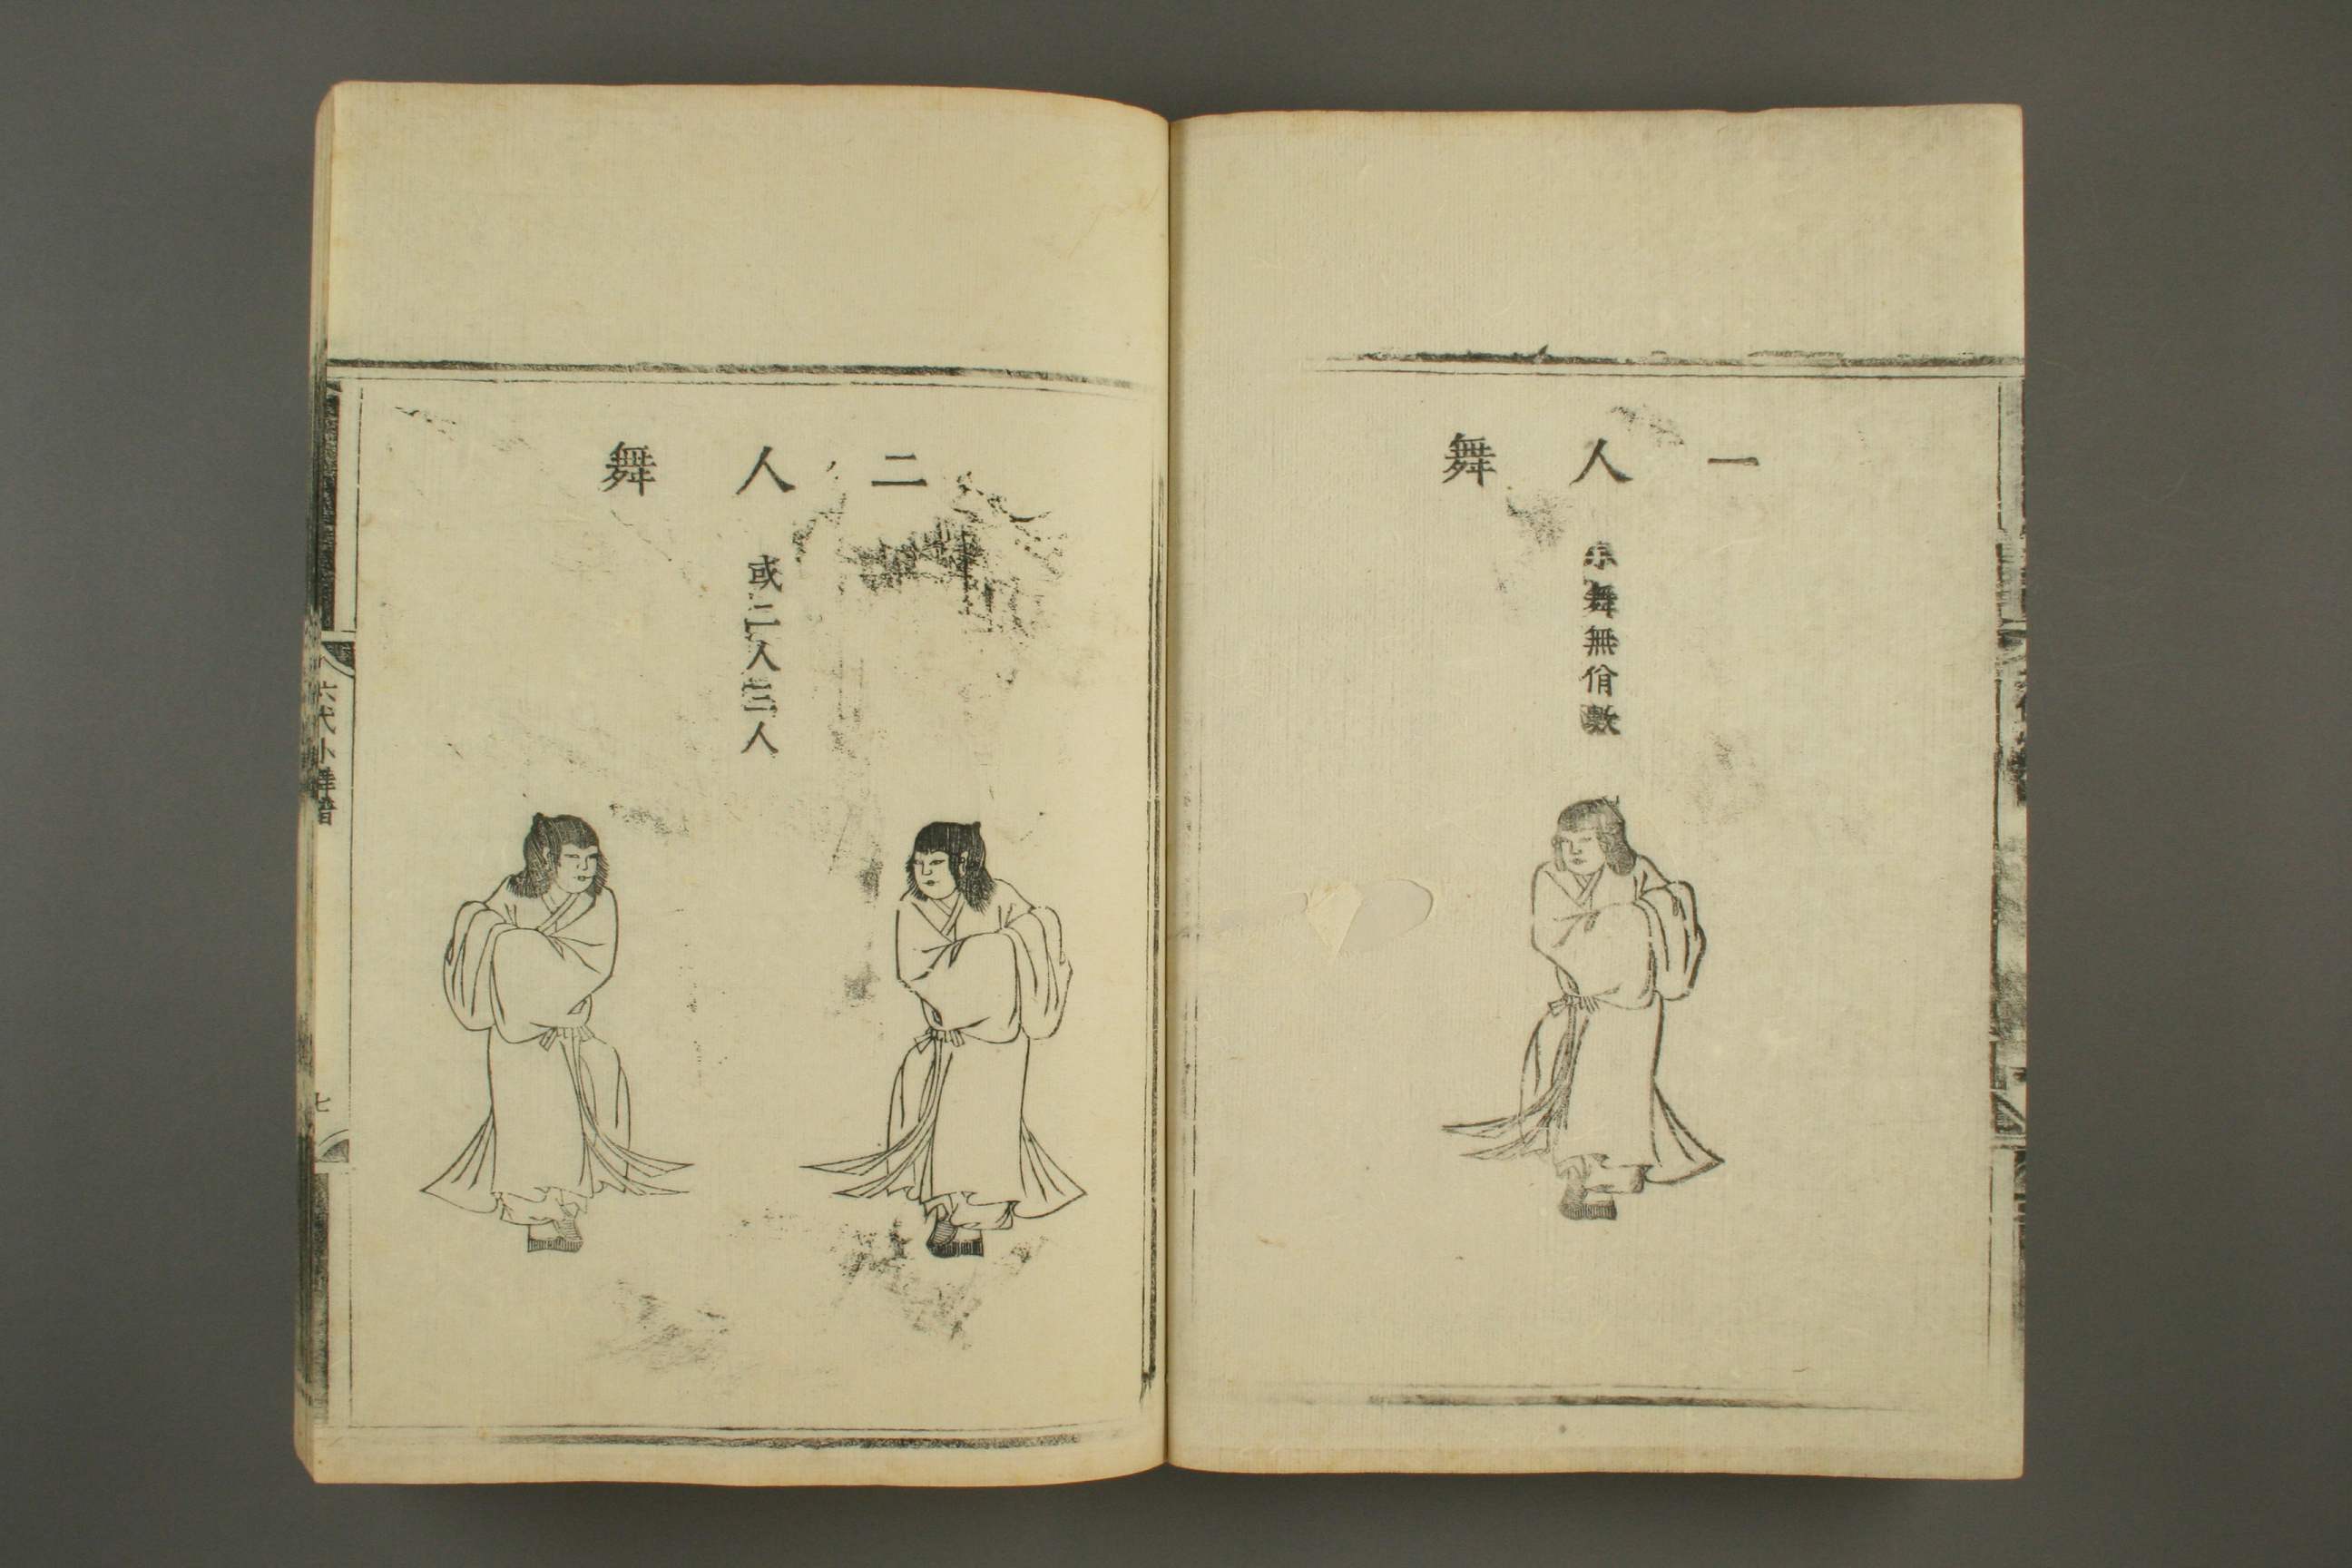 一人舞
小舞無佾數
二人舞
或二人三人
六代小舞譜
七